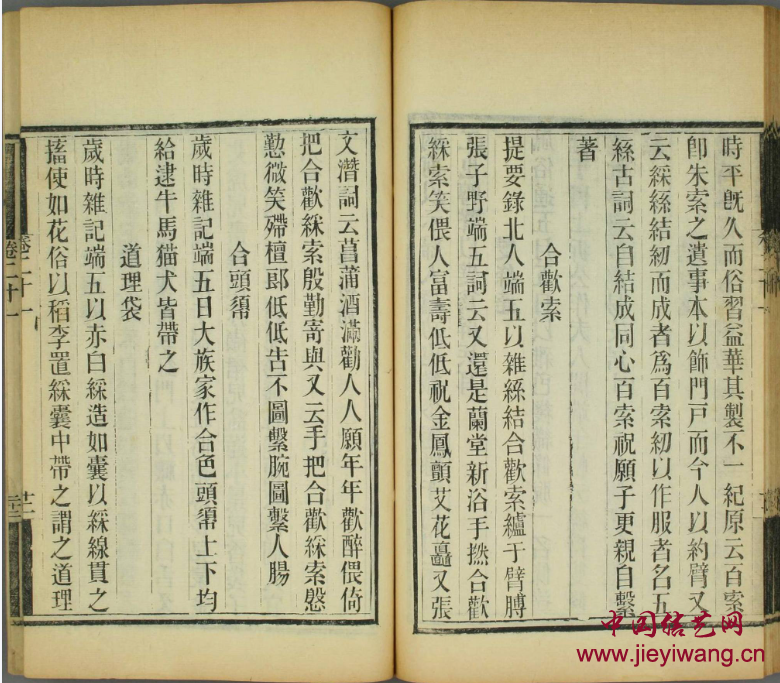 時平旣久而俗習益華其製不一紀原云百索
卽朱索之遺事本以飾門戸而今人以約臂又
云綵絲結紉而成者爲百索紉以作服者名五
絲古詞云自結成同心百索祝願子更親自繫
著
合歡索
提要錄北人端五以雜絲結合歡索纑于臂膊
張子野端五詞云又還是蘭堂新浴手撚合歡
綵索笑偎人富壽低低祝金鳳顫艾花矗又張
文潛詞云菖蒲酒滿勸人人願年年歡醉偎倚
把合歡綵索殷勤寄與又云手把合歡綵索慇
懃微笑殢檀郎低低告不圖繫腕圖繫人腸
合頭䈂
歲時雜記端五日大族家作合色頭䈂上下均
給逮牛馬猫犬皆帶之
道理袋
歲時雜記端五以赤白綵造如囊以綵線貫之
搐使如花俗以稻李置綵囊中帶之謂之道理
卷二十一
中国借艺网
www.jieyiwang.cn